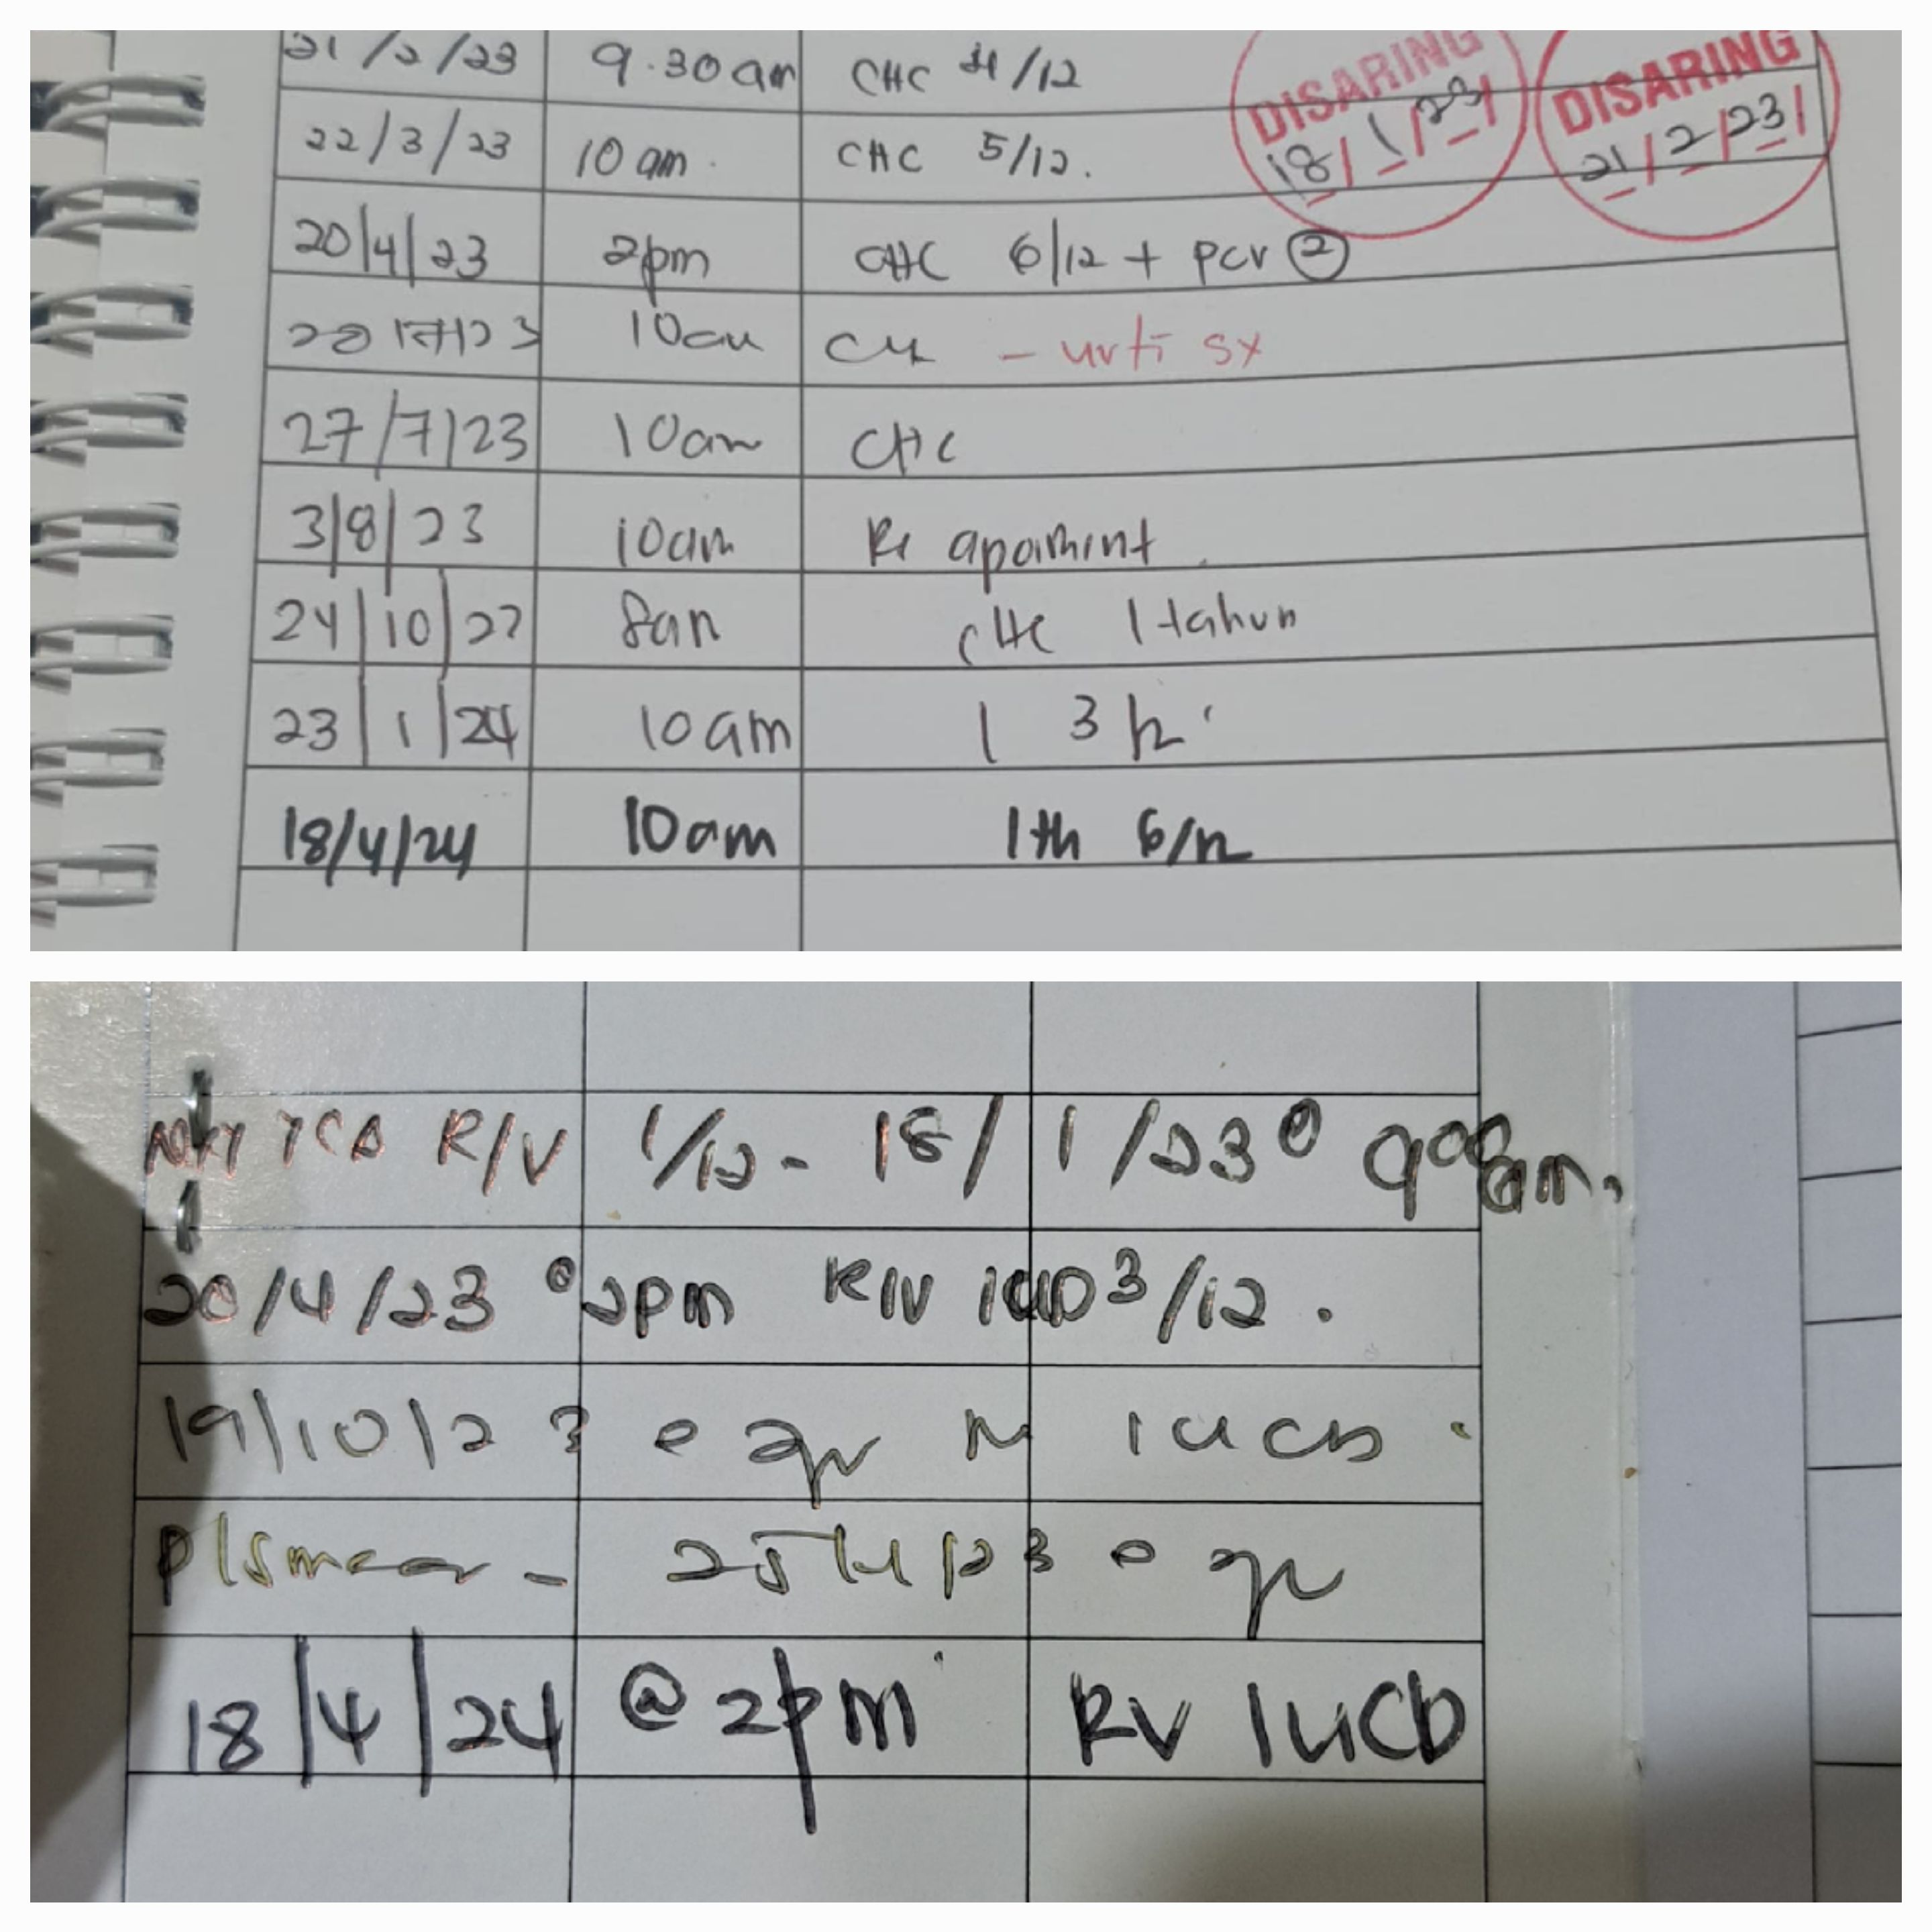 21/2/23 9.30am CHC 4/12
DISARING 18/1/23
DISARING 21/2/23
22/3/23 10 am. CHC 5/12.
20/4/23 2pm CHC 6/12 + pcv 2
20/7/23 10am - urti sx
27/7/23 10am CHC
3/8/23 10am Re apamint.
24/10/23 8am CHC 1 tahun
23/1/24 10am 1 3
18/4/24 10am 1th 6/12
Next TCA R/V 1/12 - 18/1/23 @ 9 00 am.
20/4/23 @ 2pm R/V IUD 3/12.
19/10/23 @ IUCD.
P/Smear - @
18/4/24 @ 2pm RV IUCD